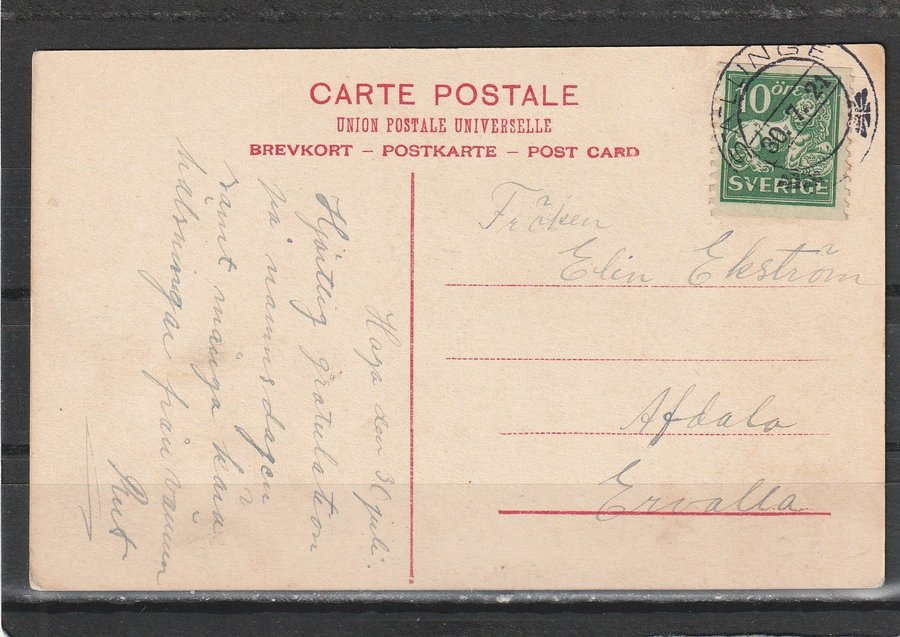 CARTE POSTALE
UNION POSTALE UNIVERSELLE
BREVKORT – POSTKARTE – POST CARD
10 öre
SVERIGE
30.7.21
Haga den 30 juli.
Hjärtlig gratulation
på namnsdagen
samt många kära
hälsningar från vännen
Rut
Fröken
Elin Ekström
Afdala
Ervalla